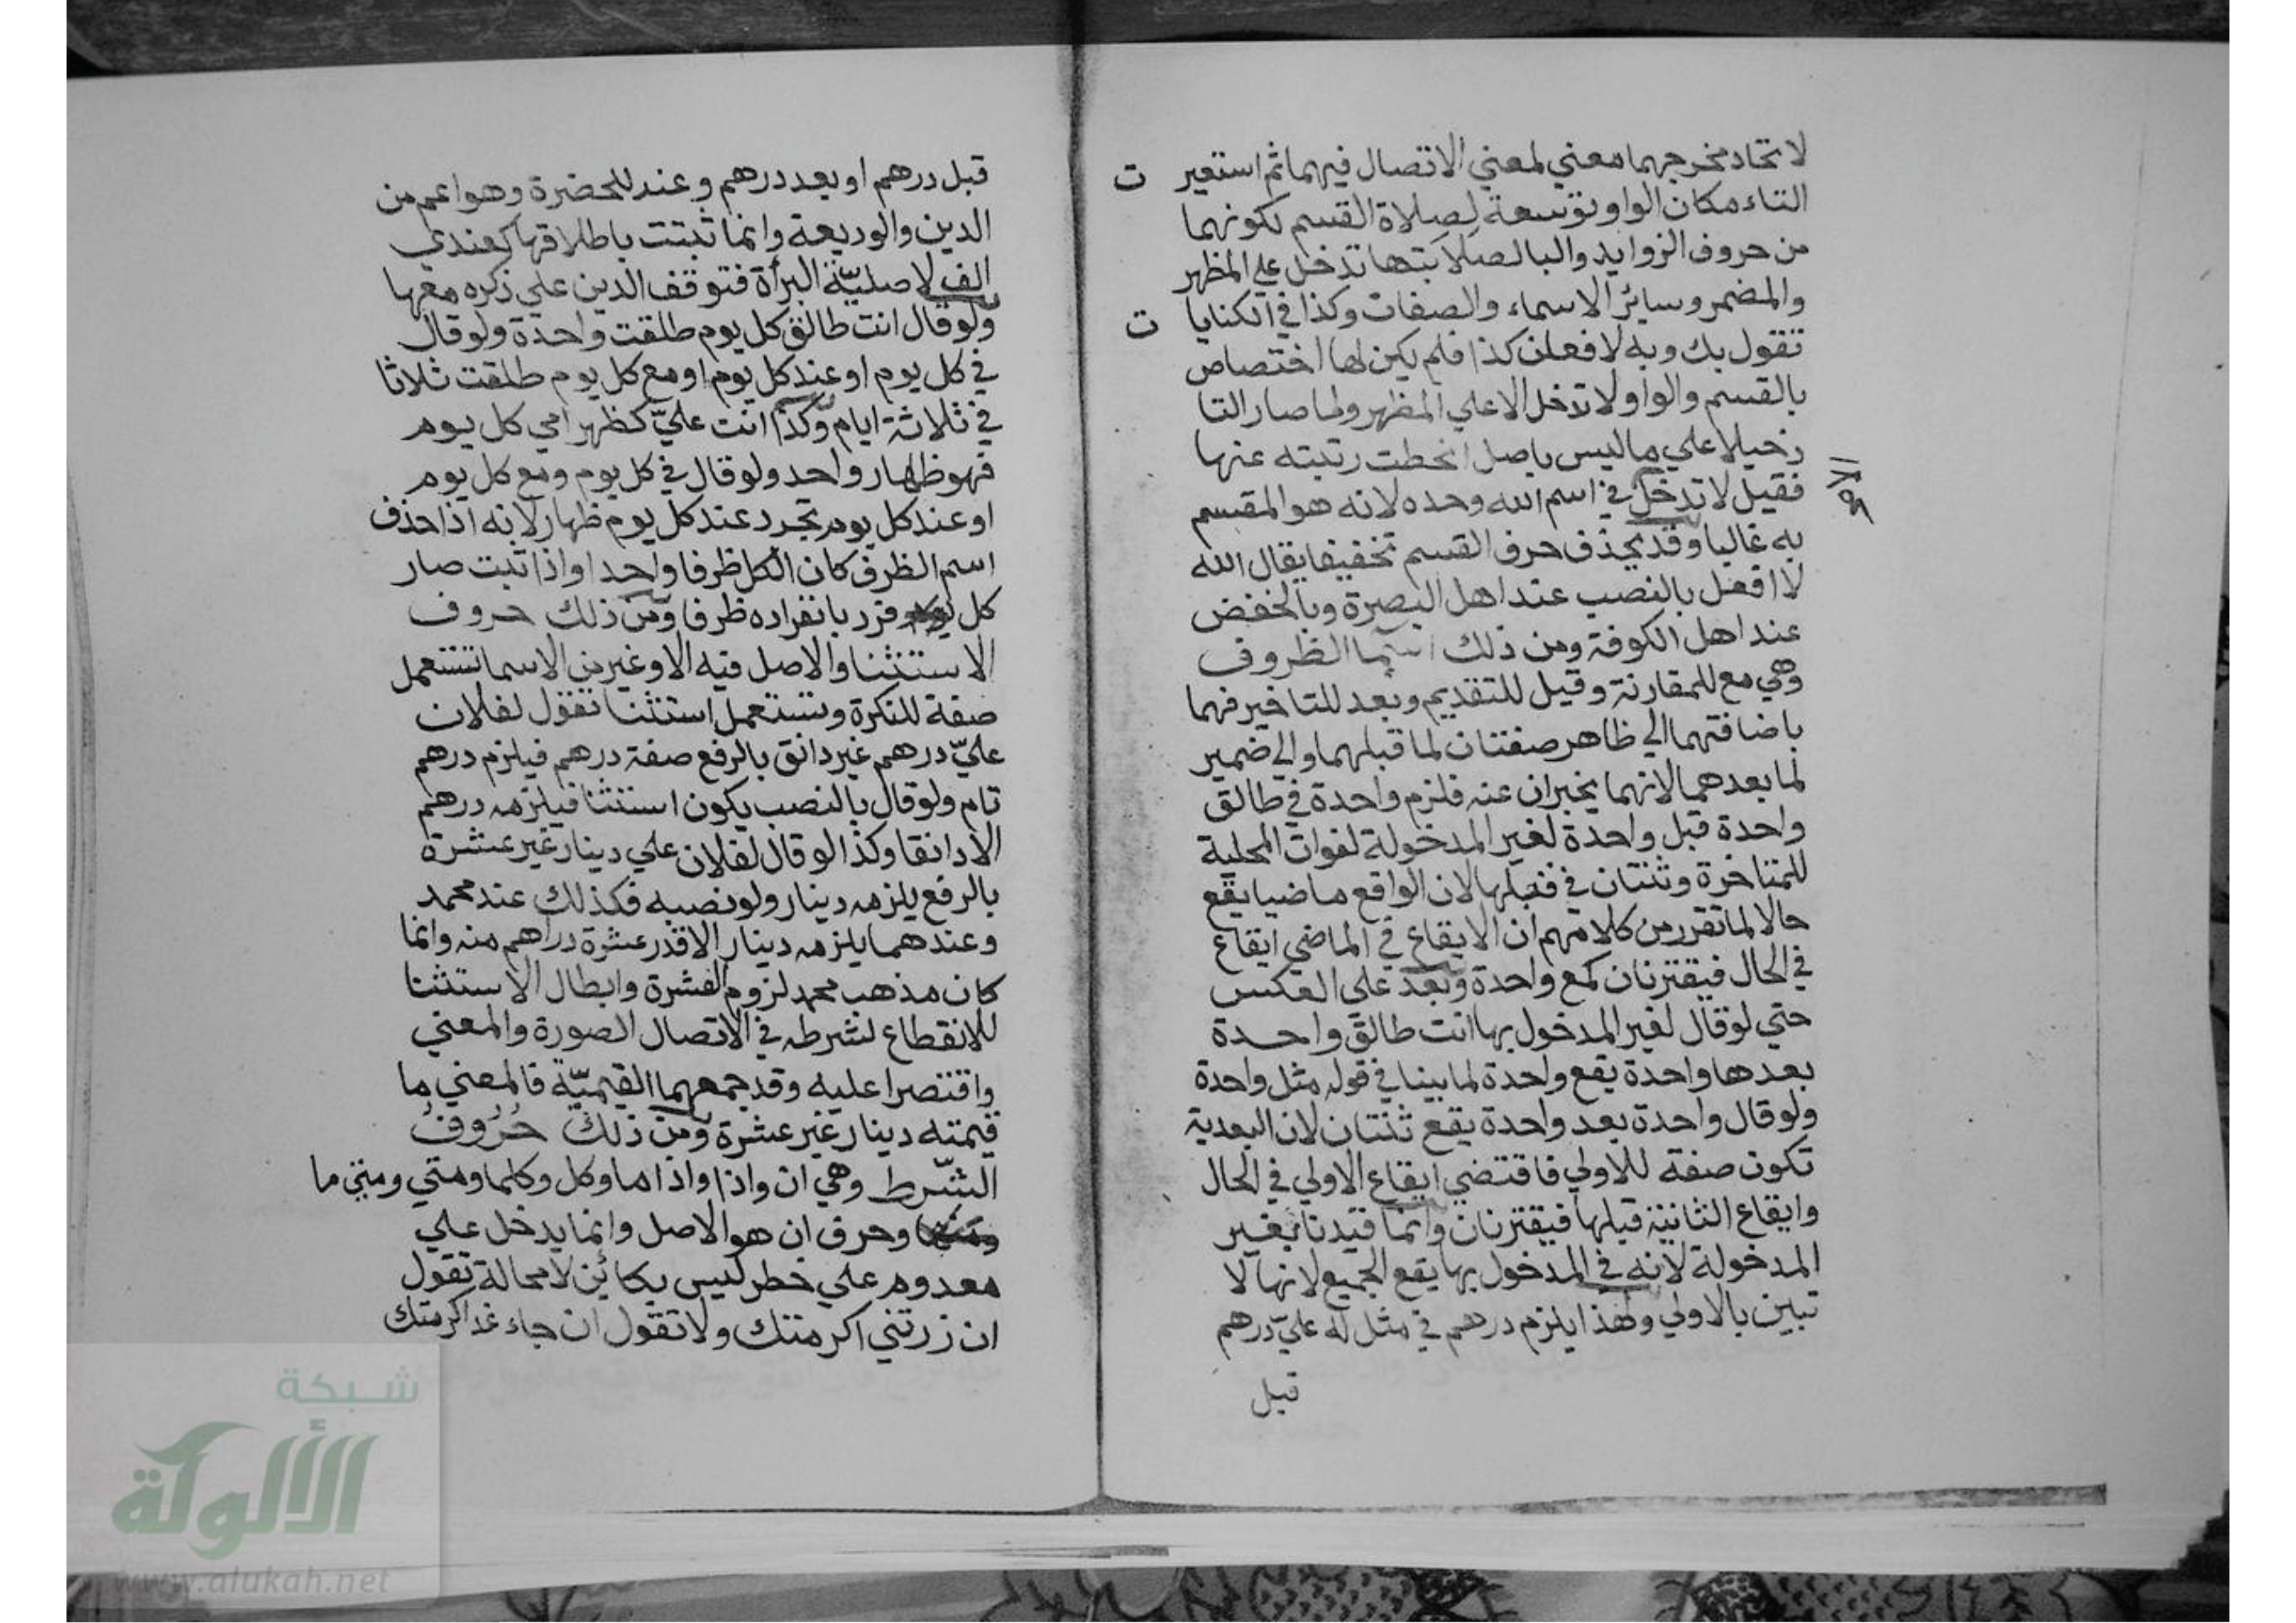 لاتحاد مخرجهما معني لمعني الاتصال فيهما ثم استعير ت
التاء مكان الواو توسعة لصلاة القسم لكونهما
من حروف الزوايد والبا لاصلابتها تدخل علي المظهر
والمضمر وساير الاسماء والصفات وكذا في الكنايا ت
تقول بك وبه لافعلن كذا فلم يكن لها اختصاص
بالقسم والواو لا تدخل الا علي المظهر ولما صار التا
دخيلا علي ما ليس باصل انحطت رتبته عنها
فقيل لا تدخل في اسم الله وحده لانه هو المقسم
به غالبا وقد يحذف حرف القسم تخفيفا يقال الله
لا افعل بالنصب عند اهل البصرة وبالخفض
عند اهل الكوفة ومن ذلك اسما الظروف
وهي مع للمقارنة وقبل للتقديم وبعد للتاخير فهما
باضافتهما الي ظاهر صفتان لما قبلهما والي ضمير
لما بعدهما لانهما يخبران عنه فلزم واحدة في طالق
واحدة قبل واحدة لغير المدخولة لفوات المحلية
للمتاخرة وثنتان في قبلها لان الواقع ماضيا يقع
حالا لما تقرر من كلامهم ان الايقاع في الماضي ايقاع
في الحال فيقترنان كمع واحدة وبعد علي العكس
حتي لو قال لغير المدخول بها انت طالق واحدة
بعدها واحدة يقع واحدة لما بينا في قوله مثل واحدة
ولو قال واحدة بعد واحدة يقع ثنتان لان البعدية
تكون صفة للاولي فاقتضي ايقاع الاولي في الحال
وايقاع الثانية قبلها فيقترنان وانما قيدنا بغير
المدخولة لانه في المدخول بها يقع الجميع لانها لا
تبين بالاولي ولهذا يلزم درهم في مثل له عليّ درهم
قبل
قبل درهم او بعد درهم وعند للحضرة وهو اعم من
الدين والوديعة وانما ثبتت باطلاقها كعندي
الف لاصليّة البرأة فتوقف الدين علي ذكره معها
ولو قال انت طالق كل يوم طلقت واحدة ولو قال
في كل يوم او عند كل يوم او مع كل يوم طلقت ثلاثا
في ثلاثة ايام وكذا انت عليّ كظهر امي كل يوم
فهو ظهار واحد ولو قال في كل يوم ومع كل يوم
او عند كل يوم تجدد عند كل يوم ظهار لانه اذا حذف
اسم الظرف كان الكل ظرفا واحدا واذا ثبت صار
كل فرد بانفراده ظرفا ومن ذلك حروف
الاستثنا والاصل فيه الا وغير من الاسما تستعمل
صفة للنكرة وتستعمل استثنا تقول لفلان
عليّ درهم غير دانق بالرفع صفة درهم فيلزم درهم
تام ولو قال بالنصب يكون استثنا فيلزمه درهم
الا دانقا وكذا لو قال لفلان علي دينار غير عشرة
بالرفع يلزمه دينار ولو نصبه فكذلك عند محمد
وعندهما يلزمه دينار الا قدر عشرة دراهم منه وانما
كان مذهب محمد لزوم العشرة وابطال الاستثنا
للانقطاع لشرطه في الاتصال الصورة والمعني
واقتصرا عليه وقد جمعهما القيميّة فالمعني ما
قيمته دينار غير عشرة ومن ذلك حُرُوفُ
الشّرط وهي ان واذا واذا ما وكل وكلما ومتي ومتي ما
وحرف ان هو الاصل وانما يدخل علي
معدوم علي خطر ليس بكائن لا محالة تقول
ان زرتني اكرمتك ولا تقول ان جاء غد اكرمتك
شبكة
الألوكة
www.alukah.net